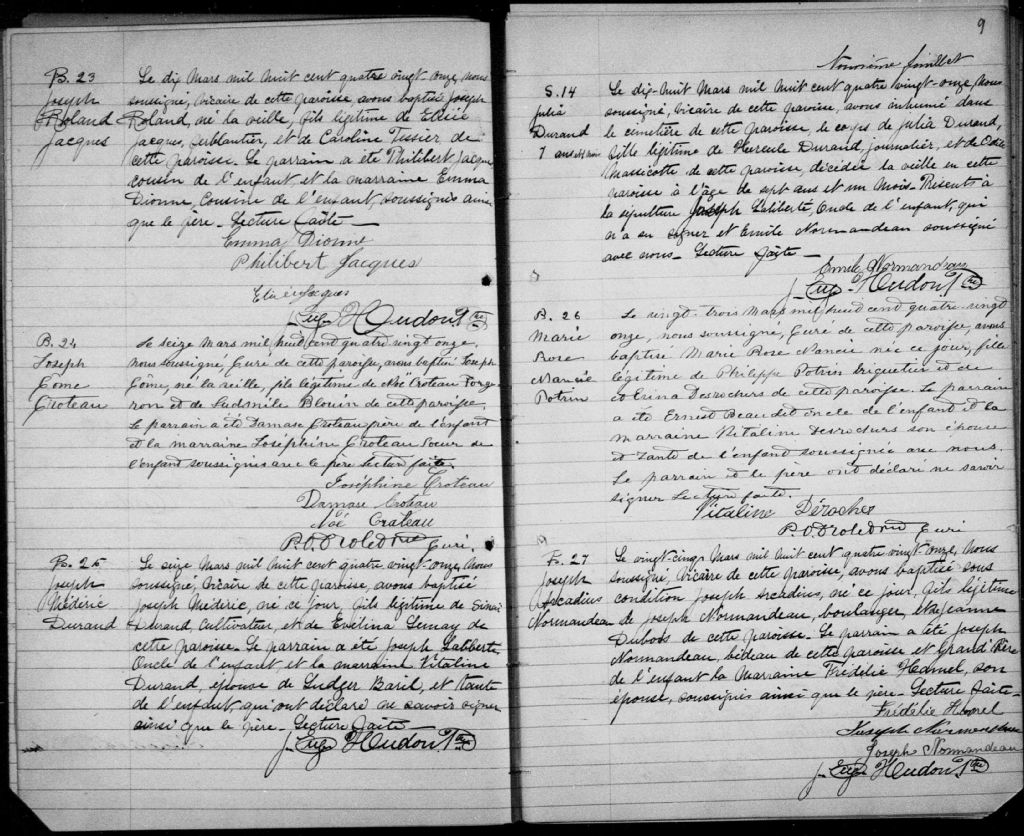 B. 23
Joseph
Roland
Jacques
Le dix Mars mil huit cent quatre vingt-onze, nous
soussigné, vicaire de cette paroisse, avons baptisé Joseph
Roland, né la veille, fils légitime de
Jacques, ferblantier, et de Caroline Tessier de
cette paroisse. Le parrain a été Philibert Jacques
cousin de l'enfant, et la marraine Emma
Dionne, cousine de l'enfant, soussignés ainsi
que le père. Lecture faite
Emma Dionne
Philibert Jacques
Jacques
J. Eug. Houdon Ptre
B. 24
Joseph
Côme
Croteau
Le seize Mars mil huit cent quatre vingt onze,
nous soussigné, Curé de cette paroisse, avons baptisé Joseph
Côme, né la veille, fils légitime de Noé Croteau Forge
ron et de Ludmile Blouin de cette paroisse,
Le parrain a été Damase Croteau frère de l'enfant
et la marraine Joséphine Croteau Soeur de
l'enfant soussignés avec le père Lecture faite.
Joséphine Croteau
Damase Croteau
Noé Crateau
P. O. Drolet Ptre Curé.
B. 25
Joseph
Médéric
Durand
Le seize Mars mil huit cent quatre vingt-onze, nous
soussigné, vicaire de cette paroisse, avons baptisé
Joseph Médéric, né ce jour, fils légitime de Sinaï
Durand, Cultivateur, et de Evélina Lemay de
cette paroisse. Le parrain a été Joseph Laliberté,
Oncle de l'enfant et la marraine Vitaline
Durand, épouse de Ludger Baril, et tante
de l'enfant qui ont déclaré ne savoir signer
ainsi que le père. Lecture faite
J. Eug. Houdon Ptre
9
feuillet
S. 14
Julia
Durand
7 ans et 1 mois
Le dix-huit Mars mil huit cent quatre vingt-onze, nous
soussigné, vicaire de cette paroisse, avons inhumé dans
le cimetière de cette paroisse, le corps de Julia Durand,
fille légitime de Hercule Durand, journalier, et de
Massicotte de cette paroisse, décédée la veille en cette
paroisse à l'âge de sept ans et un mois. Présents à
la sépulture Joseph Laliberté, Oncle de l'enfant, qui
n'a su signer et Emile Normandeau soussigné
avec nous. Lecture faite
Emile Normandeau
J. Eug. Houdon Ptre
B. 26
Marie
Rose
Nancie
Potrin
Le vingt-trois Mars mil huit cent quatre-vingt
onze, nous soussigné, Curé de cette paroisse, avons
baptisé Marie Rose Nancie née ce jour, fille
légitime de Philippe Potrin briquetier et de
Exina Desrochers de cette paroisse. Le parrain
a été Ernest Beaudet oncle de l'enfant et la
marraine Vitaline Desrochers son épouse
et tante de l'enfant soussignée avec nous.
Le parrain et le père ont déclaré ne savoir
signer Lecture faite.
Vitaline Déroches
P. O. Drolet Ptre Curé
B. 27
Joseph
Arcadius
Normandeau
Le vingt-cinq Mars mil huit cent quatre vingt-onze, nous
soussigné, vicaire de cette paroisse, avons baptisé sous
condition Joseph Arcadius, né ce jour, fils légitime
de Joseph Normandeau, boulanger, et de Jeanne
Dubois de cette paroisse. Le parrain a été Joseph
Normandeau, bedeau de cette paroisse et grand Père
de l'enfant la Marraine Frédélie Hamel, son
épouse, soussignés ainsi que le père. Lecture faite
Frédélie Hamel
Joseph Normandeau
Joseph Normandeau
J. Eug. Houdon Ptre